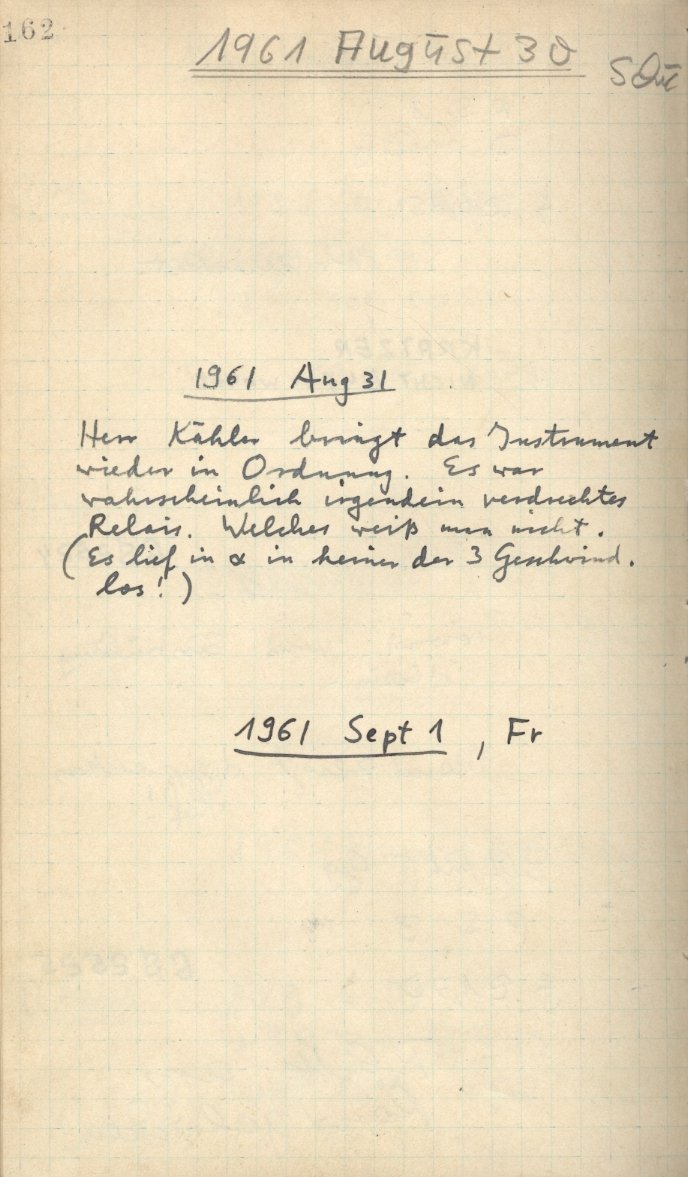 162
1961 August 30
1961 Aug 31
Herr Kähler bringt das Instrument
wieder in Ordnung. Es war
wahrscheinlich irgendein verdrecktes
Relais. Welches weiß man nicht.
(Es lief in α in keiner der 3 Geschwind.
los!)
1961 Sept 1, Fr